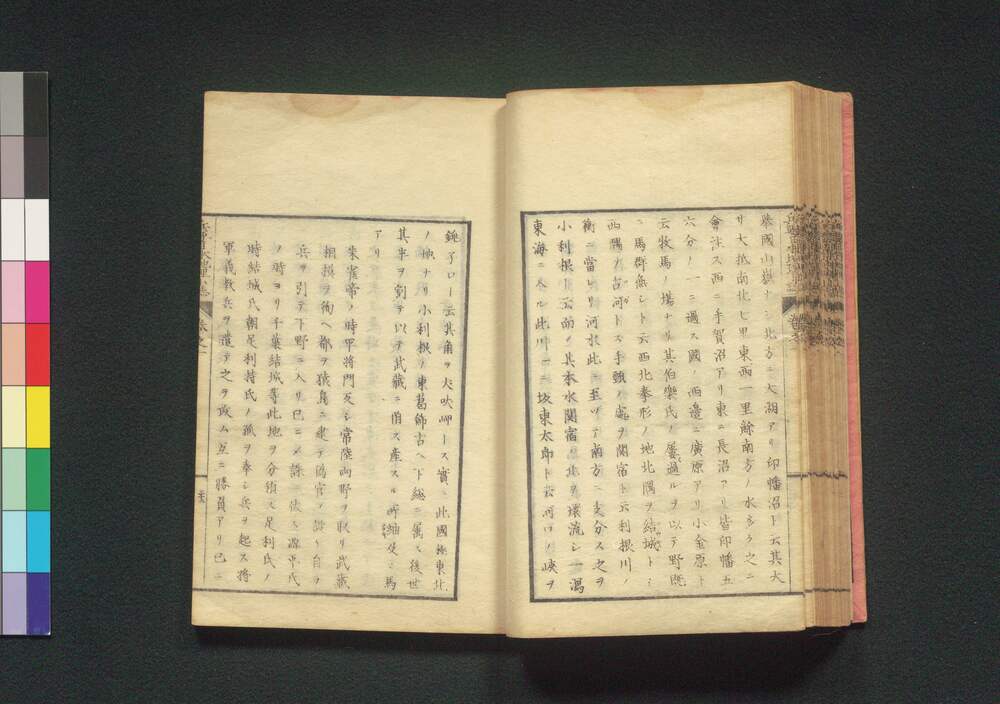 泰國山嶽ナシ北方ニ大湖アリ印幡沼ト云其大
サ大抵南北七里東西一里餘南方ノ水多ク之ニ
會注ス西ニ手賀沼アリ東ニ長沼アリ皆印幡五
六分ノ一ニ過ス國ノ西邊ニ廣原アリ小金原ト
云牧馬ノ場ナリ其伯樂氏ノ屢過ルヲ以テ野既
ニ馬群無シト云西北拳形ノ地北隅ヲ結城トシ
西隅ヲ古河トス手頸ノ處ヲ關宿ト云利根川ノ
衝ニ當レリ河水此ニ至ツテ南方ニ支分ス之ヲ
小利根ト云而メ其本水關宿ノ北ヲ環流シ一瀉
東海ニ入ル此川一ニ坂東太郎ト云河口ノ峽ヲ
銚子口ト云其角ヲ犬吠岬トス實ニ此國極東北
ノ地ナリ小利根ノ東葛飾古ヘ下總ニ属ス後世
其半ヲ割テ以テ武藏ニ附ス産スル所紬炭ニ馬
アリ
朱雀帝ノ時平將門反シ常陸兩野ヲ取リ武藏
相摸ヲ徇ヘ都ヲ猿島ニ建テ僞官ヲ設ケ自ラ
兵ヲ引テ下野ニ入リ已ニメ誅ニ伏ス源平氏
ノ時ヨリ千葉結城等此地ヲ分領ス足利氏ノ
時結城氏朝足利持氏ノ孤ヲ奉シ兵ヲ起ス將
軍義教兵ヲ遣テ之ヲ攻ム互ニ勝負アリ已ニ